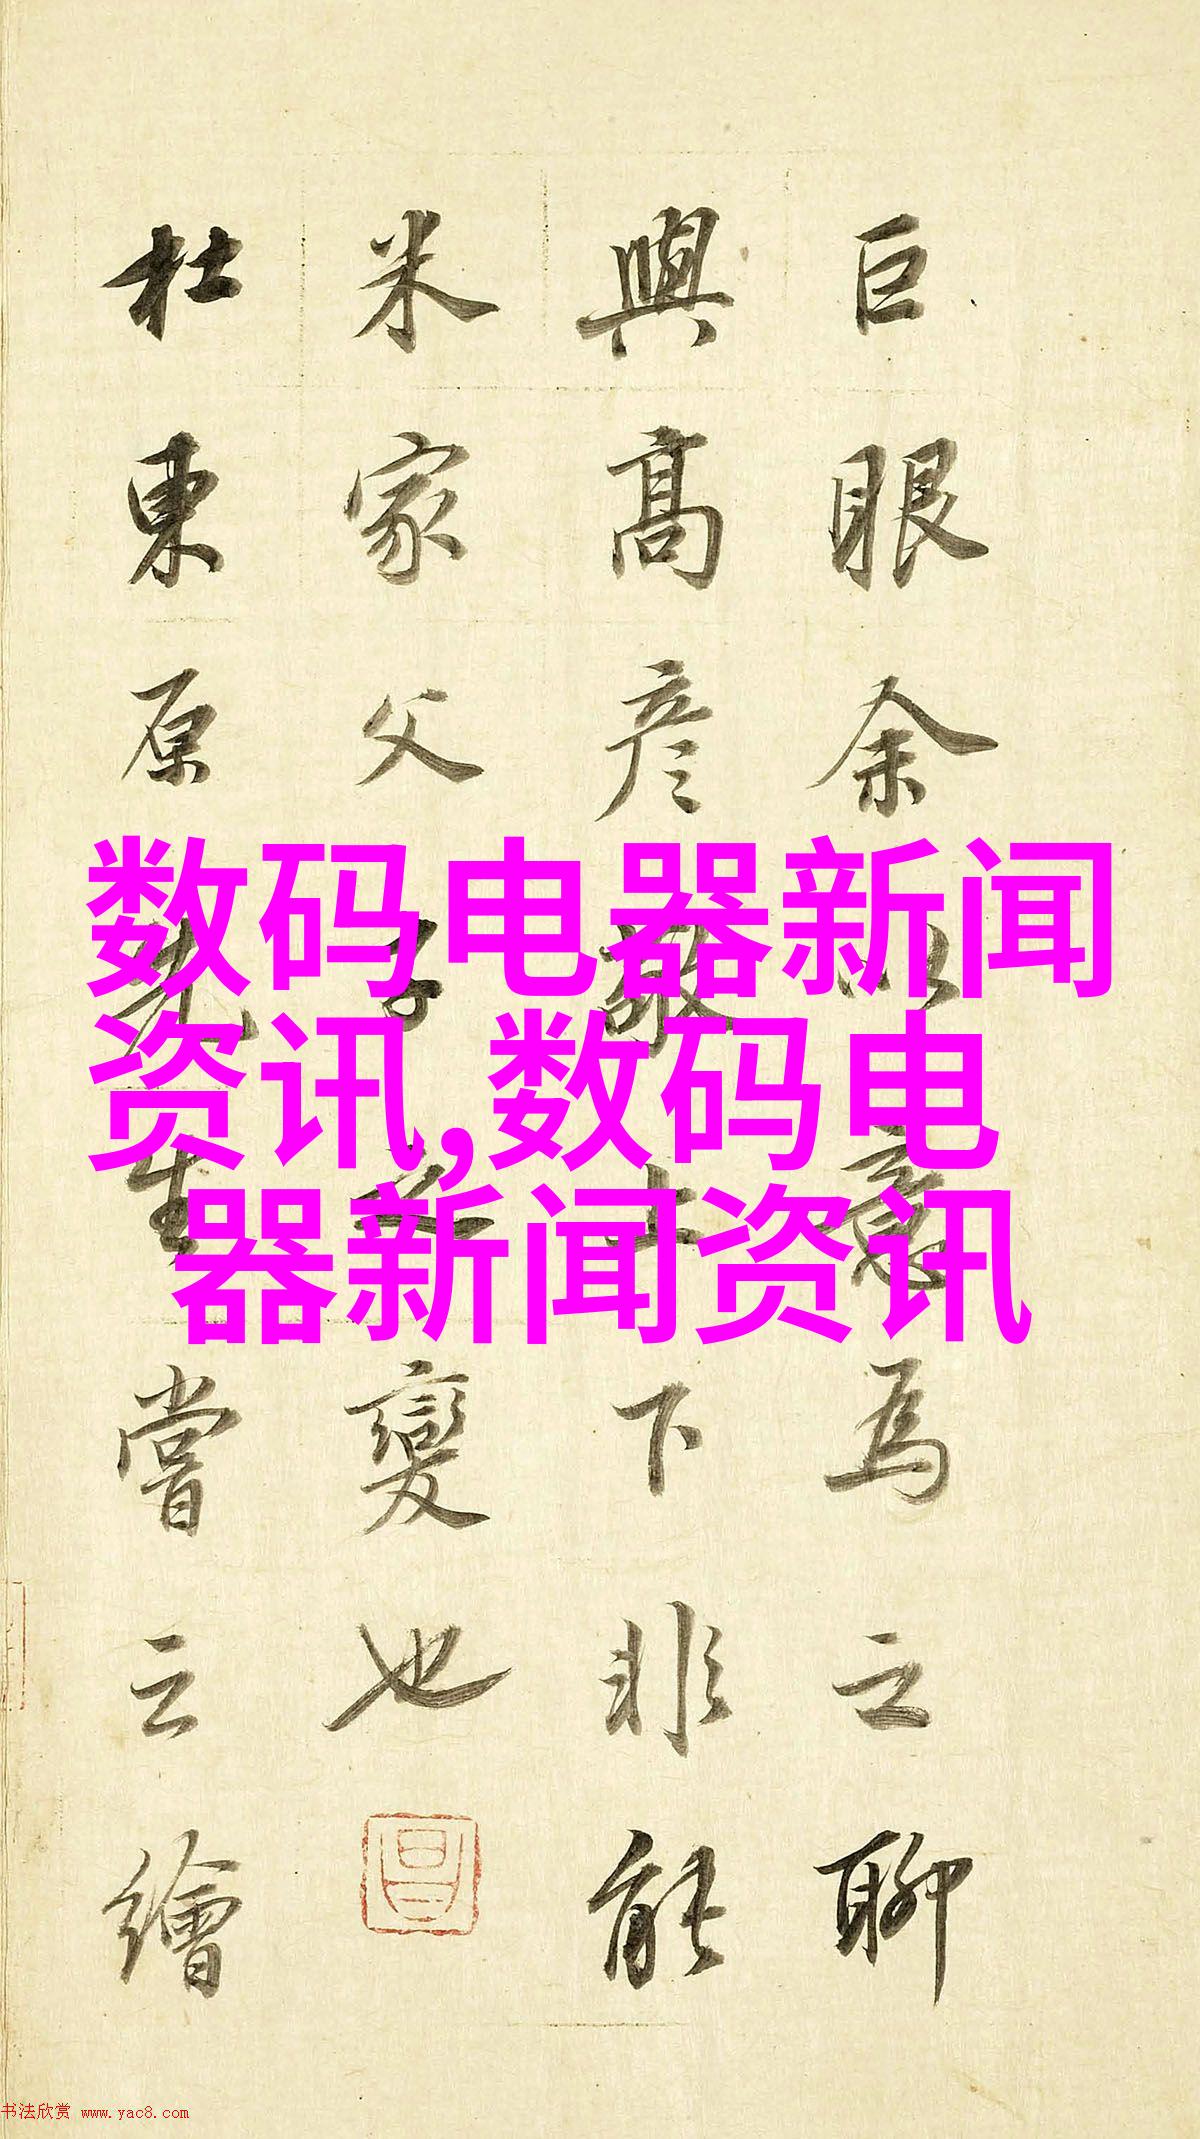 巨眼余以意為之聊
與高彦敬上下非能
米家父子之變也
杜東原先生嘗云繪
数码电器新闻
资讯,数码电
器新闻资讯
书法欣赏 www.yac8.com